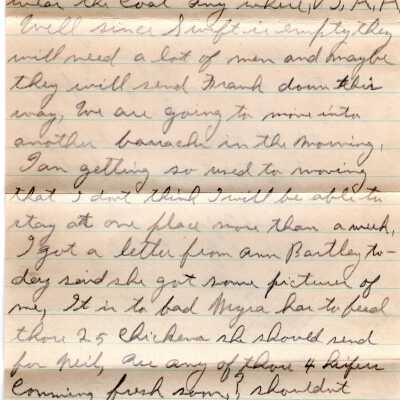 wear the coat any where, U, S, A, A
Well since Swift is empty they
will need a lot of men and maybe
they will send Frank down this
way, We are going to move into
another barracks in the morning,
I am getting so used to moving
that I dont think I will be able to
stay at one place more than a week,
I got a letter from Ann Bartley to-
day said she got some pictures of
me, It is to bad Myra has to feed
those 25 chickens she should send
for Neil, Are any of those 4 heifers
comming fresh soon, I shouldn't